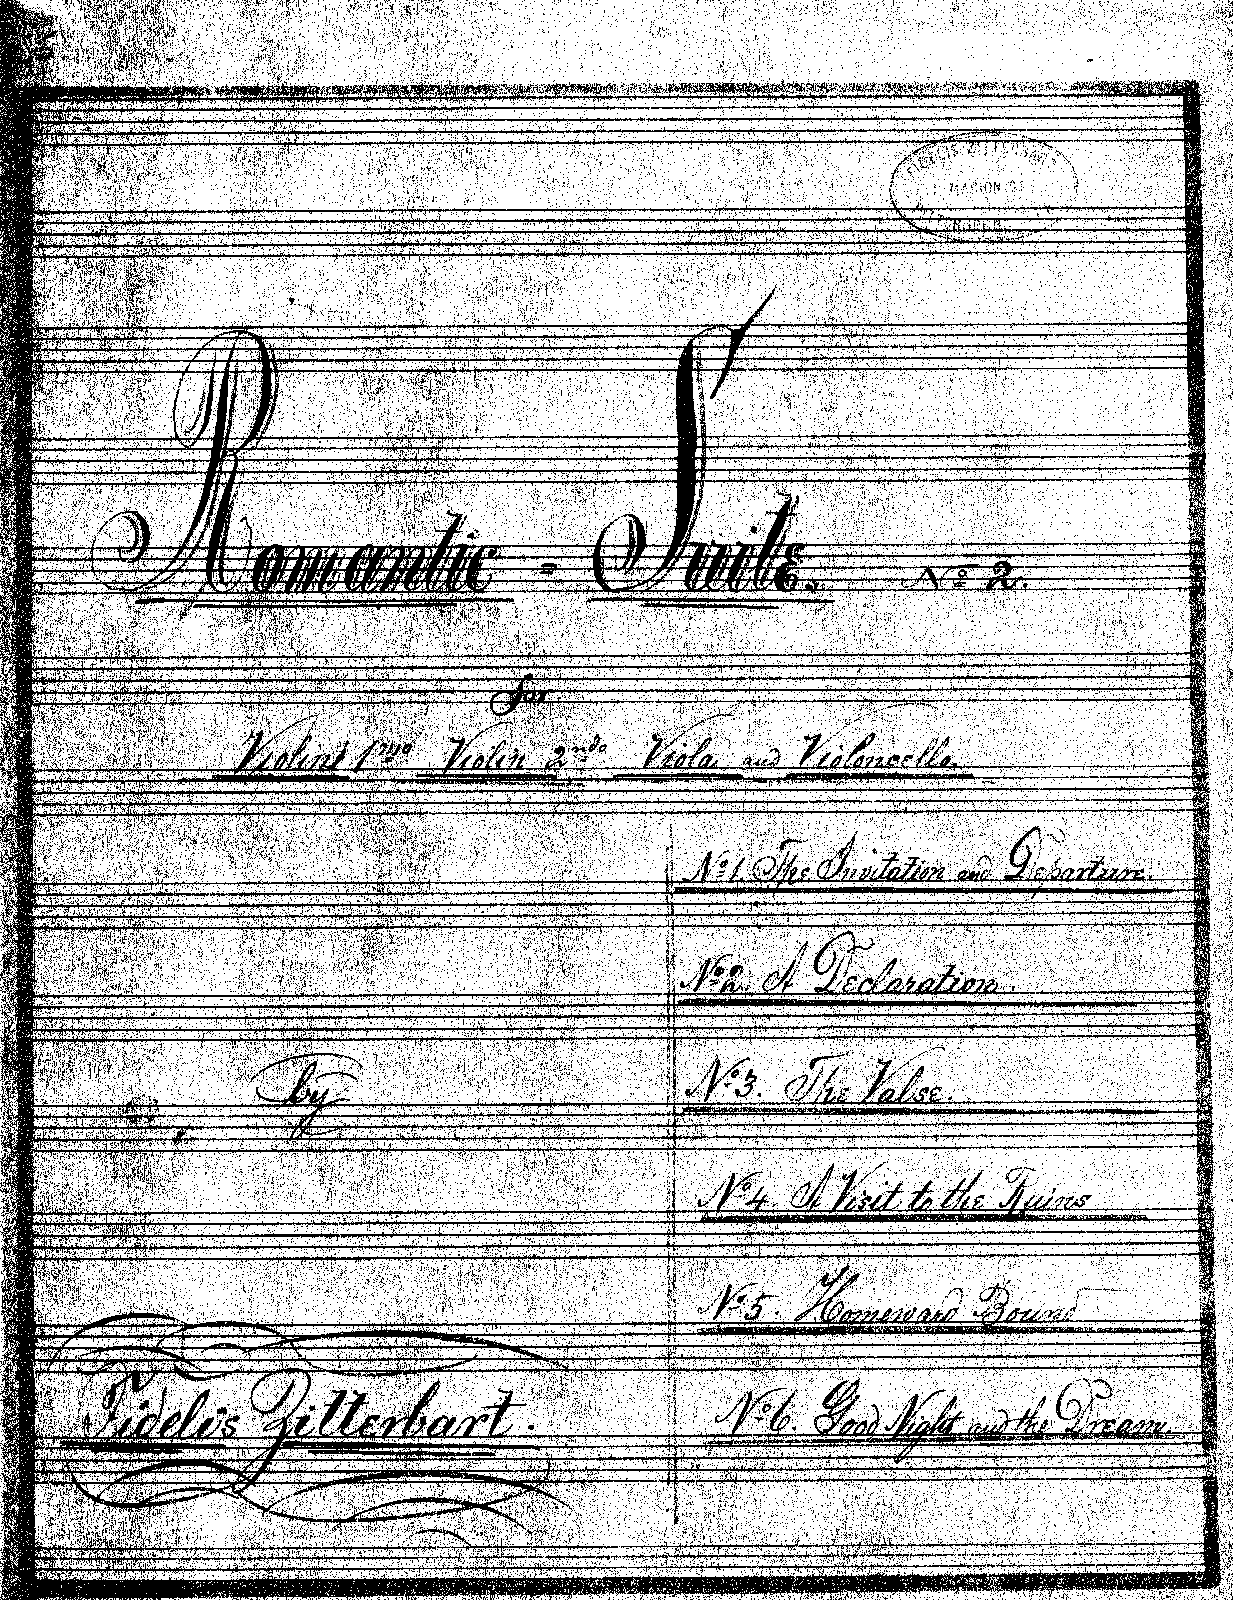 MARION ST
Romantic = Suite. No 2.
for
Violin 1mo Violin 2ndo Viola and Violoncello.
No 1. The Invitation and Departure.
No 2. A Declaration.
No 3. The Valse.
by
No 4. A Visit to the Ruins
No 5. Homeward Bound
Fidelis Zitterbart.
No 6. Good Night and the Dream.